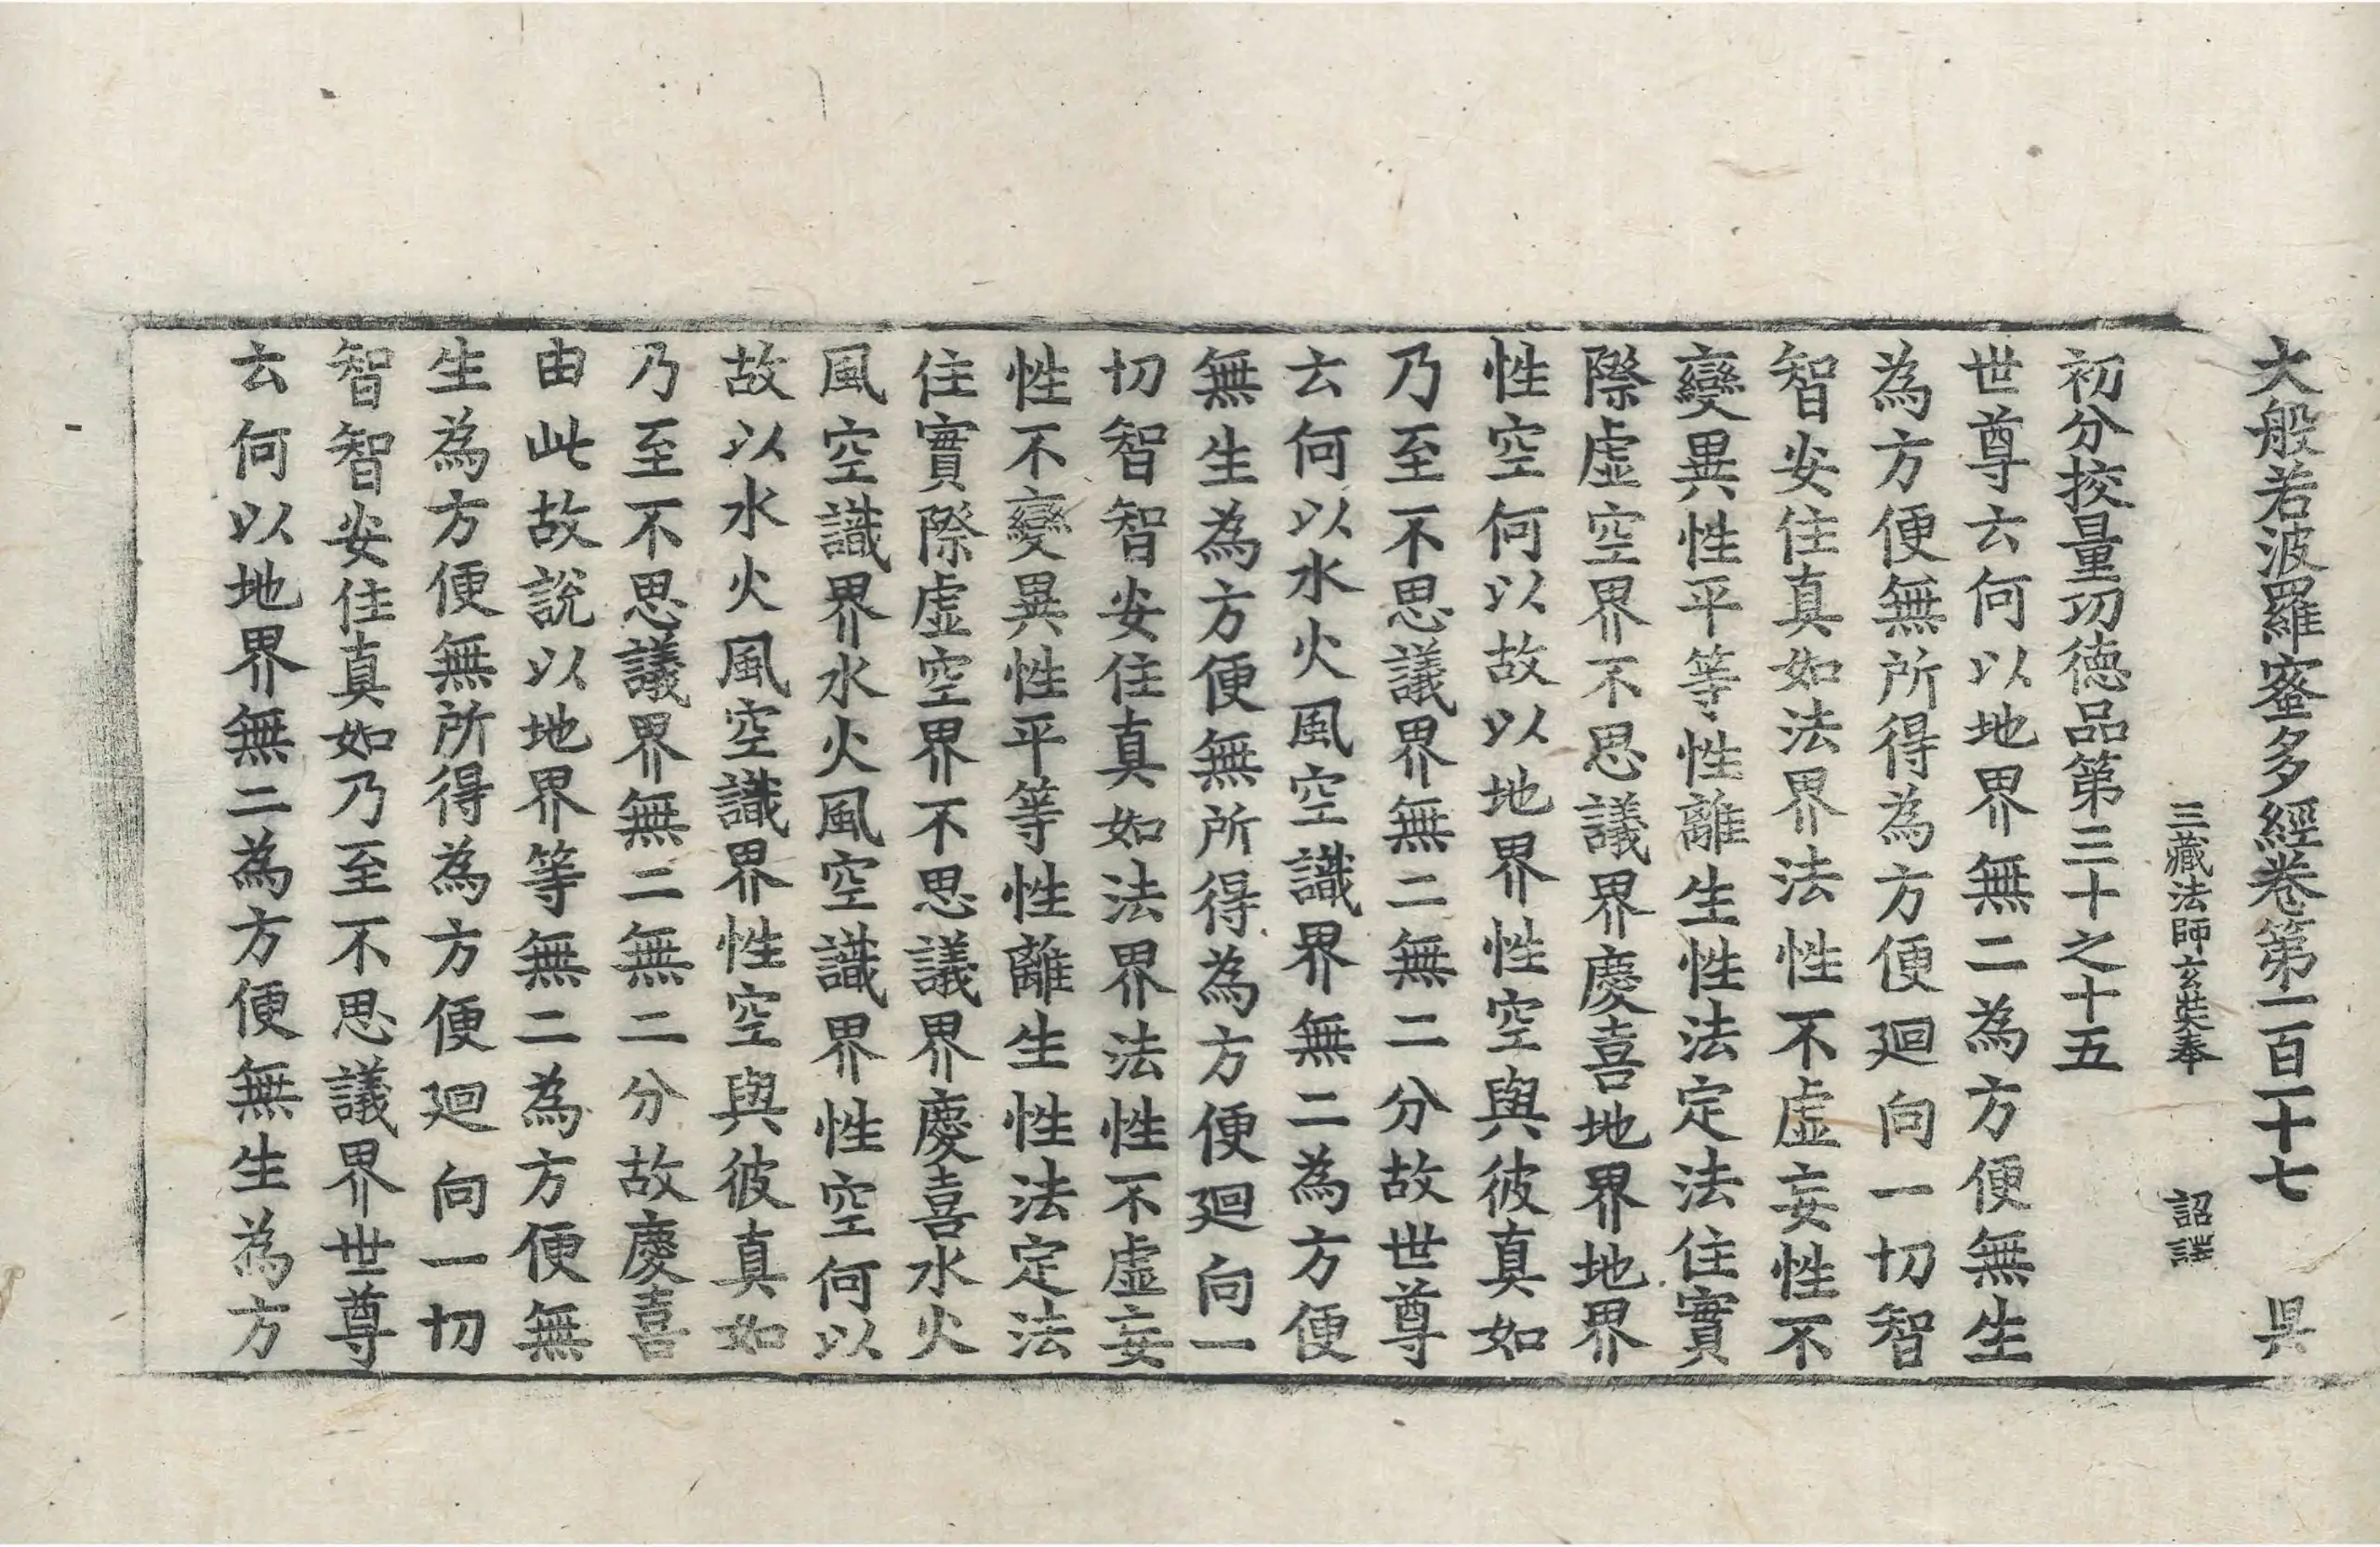 大般若波羅蜜多經卷第一百一十七 昃
三藏法師玄奘奉 詔譯
初分挍量功德品第三十之十五
世尊云何以地界無二為方便無生
為方便無所得為方便迴向一切智
智安住真如法界法性不虛妄性不
變異性平等性離生性法定法住實
際虛空界不思議界慶喜地界地界
性空何以故以地界性空與彼真如
乃至不思議界無二無二分故世尊
云何以水火風空識界無二為方便
無生為方便無所得為方便迴向一
切智智安住真如法界法性不虛妄
性不變異性平等性離生性法定法
住實際虛空界不思議界慶喜水火
風空識界水火風空識界性空何以
故以水火風空識界性空與彼真如
乃至不思議界無二無二分故慶喜
由此故說以地界等無二為方便無
生為方便無所得為方便迴向一切
智智安住真如乃至不思議界世尊
云何以地界無二為方便無生為方